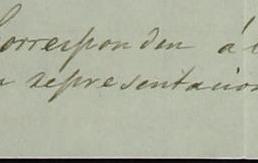 Corresponden á l
representacion